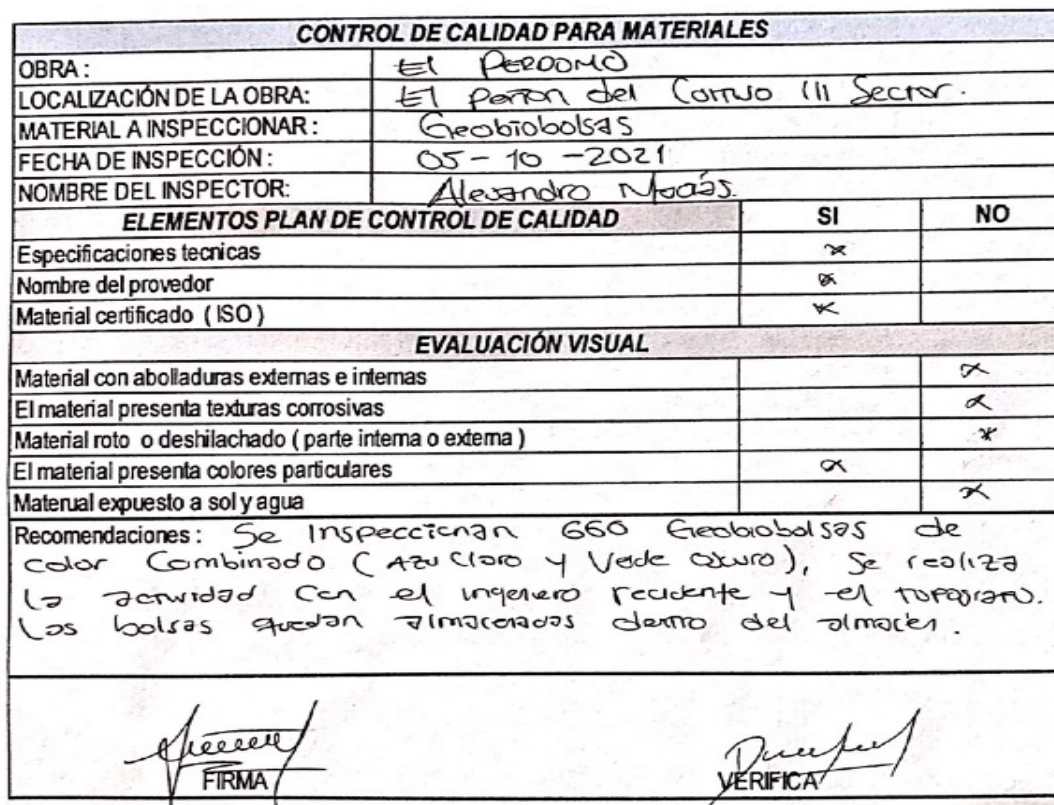 CONTROL DE CALIDAD PARA MATERIALES
OBRA : El PERDOMO
LOCALIZACIÓN DE LA OBRA: El peñon del Cortijo III Sector.
MATERIAL A INSPECCIONAR : Geobiobolsas
FECHA DE INSPECCIÓN : 05-10-2021
NOMBRE DEL INSPECTOR: Alejandro Macías.
ELEMENTOS PLAN DE CONTROL DE CALIDAD SI NO
Especificaciones tecnicas x
Nombre del provedor x
Material certificado ( ISO ) x
EVALUACIÓN VISUAL
Material con abolladuras externas e internas x
El material presenta texturas corrosivas x
Material roto o deshilachado ( parte interna o externa ) x
El material presenta colores particulares x
Materual expuesto a sol y agua x
Recomendaciones : Se Inspeccionan 660 Geobiobolsas de
color Combinado ( Azul Claro y Verde Oscuro), Se realiza
la actividad Con el ingeniero recidente y el topografo.
Las bolsas quedan almacenadas dentro del almacen.
FIRMA VERIFICA